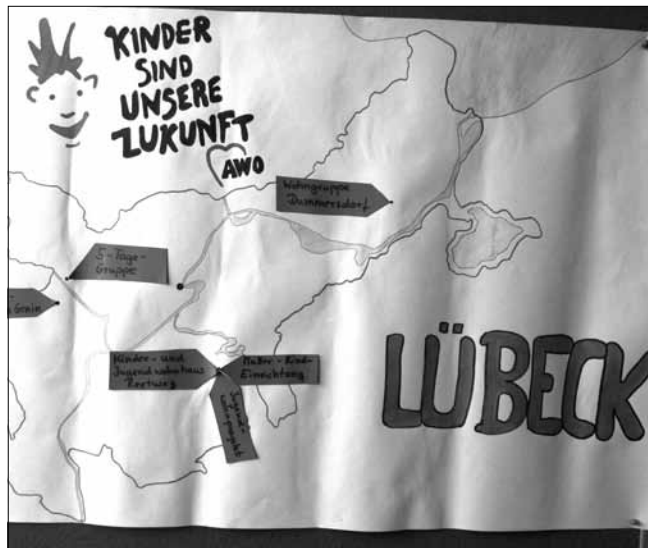 KINDER
SIND
UNSERE
ZUKUNFT
AWO
Wohngruppe
Dummersdorf
5-Tage-
Gruppe
Kinder- und
Jugendwohnhaus
Mutter-Kind-
Einrichtung
Jugend-
wohnprojekt
LÜBECK